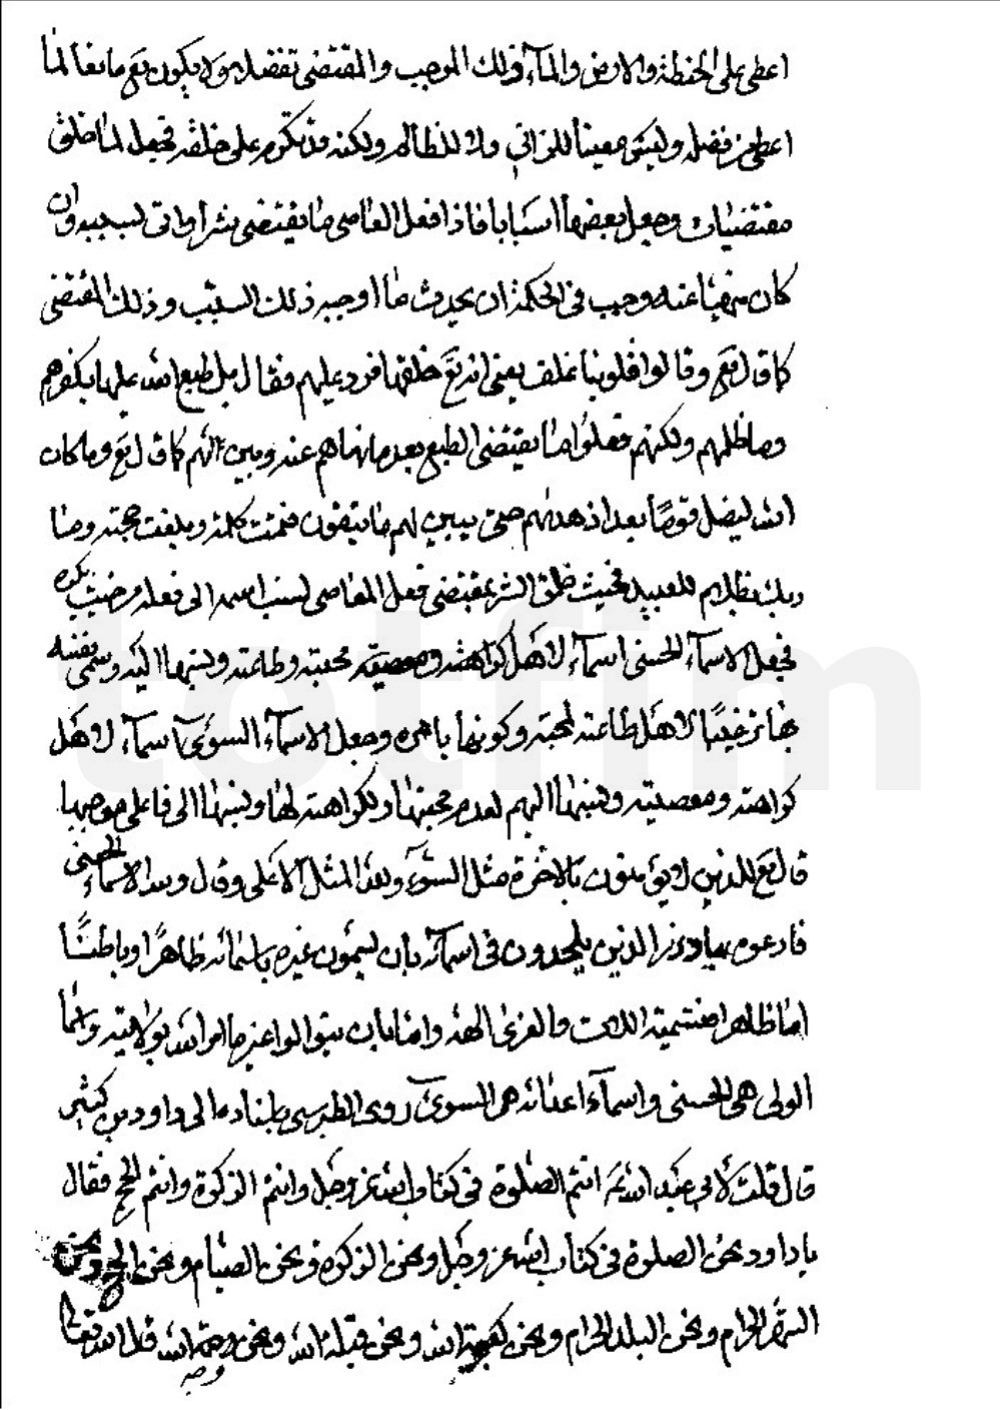 اعطى على الحنطة والارض والمآء ذلك الموجب والمقتضى تفضله ولا يكون تع مانعا لما
اعطى من فضله وليس معينا للزاني ولا للظالم ولكنه قد تكرم على خلقه فجعل لما خلق
مقتضيات وجعل بعضها اسبابا فاذا فعل العاصى ما يقتضى بشرا واتى لسببه وان
كان منهيا عنه وجب فى الحكمة ان يحدث ما اوجبه ذلك السبب وذلك المقتضى
كما قال تع وقالوا قلوبنا غلف يعنى انه تع خلقها فرد عليهم فقال بل طبع الله عليها بكفرهم
وما ظلمهم ولكنهم فعلوا ما يقتضى الطبع بعد ما نهاهم عنه وبين لهم كما قال تع وما كان
الله ليضل قوما بعد اذ هداهم حتى يبين لهم ما يتقون فتمت كلمته وبلغت حجته وما
ربك بظلام للعبيد فحيث خلق الشر بمقتضى فعل المعاصى لسبب اسمه الى فعله من حيث يكره
فجعل الاسمآء الحسنى اسمآء لاهل كراهته ومعصيته محبته وطاعته ونسبها اليه وسمى نفسه
بها ترغيبا لاهل طاعته لمحبته وكونها بامره وجعل الاسمآء السوئى اسمآء لاهل
كراهته ومعصيته ونسبها اليهم لعدم محبتها ولكراهته لها ونسبها الى فاعلى موجبها
قال تع للذين لا يؤمنون بالاخرة مثل السوء ولله المثل الاعلى وقال ولله الاسماء الحسنى
فادعوه بها وذروا الذين يلحدون فى اسمآئه بان يسمون غيره باسمائه ظاهرا وباطنا
اما ظاهرا فتسمية اللات والعزى الهة واما بان يتوالوا غير ما امر الله بولايته واسمآ
الولى هى الحسنى واسمآء اعدائه هى السوئى روى الطبرسى باسناده الى داود بن كثير
قال قلت لابى عبد الله ع انتم الصلوة فى كتاب الله عز وجل وانتم الزكوة وانتم الحج فقال
يا داود نحن الصلوة فى كتاب الله عز وجل ونحن الزكوة ونحن الصيام ونحن الحج ونحن
الشهر الحرام ونحن البلد الحرام ونحن كعبة الله ونحن قبلة الله ونحن وجه الله قال الله تعالى
وجه
totfim